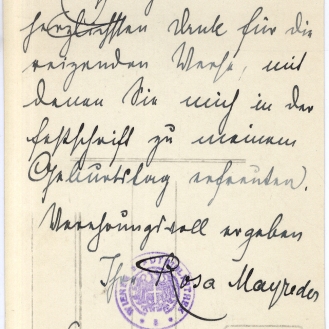 herzlichsten Dank für die
reizenden Verse, mit
denen Sie mich in der
Festschrift zu meinem
Geburtstag erfreuten.
Verehrungsvoll ergeben
Ihre Rosa Mayreder
WIENER STADTBIBLIOTHEK